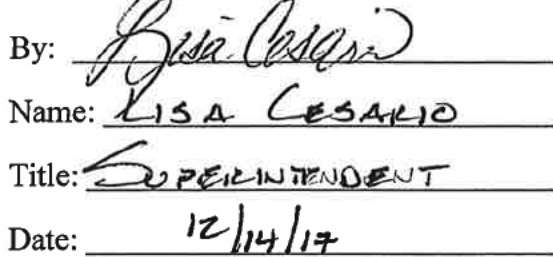 By: Lisa Cesario
Name: LISA CESARIO
Title: SUPERINTENDENT
Date: 12/14/17